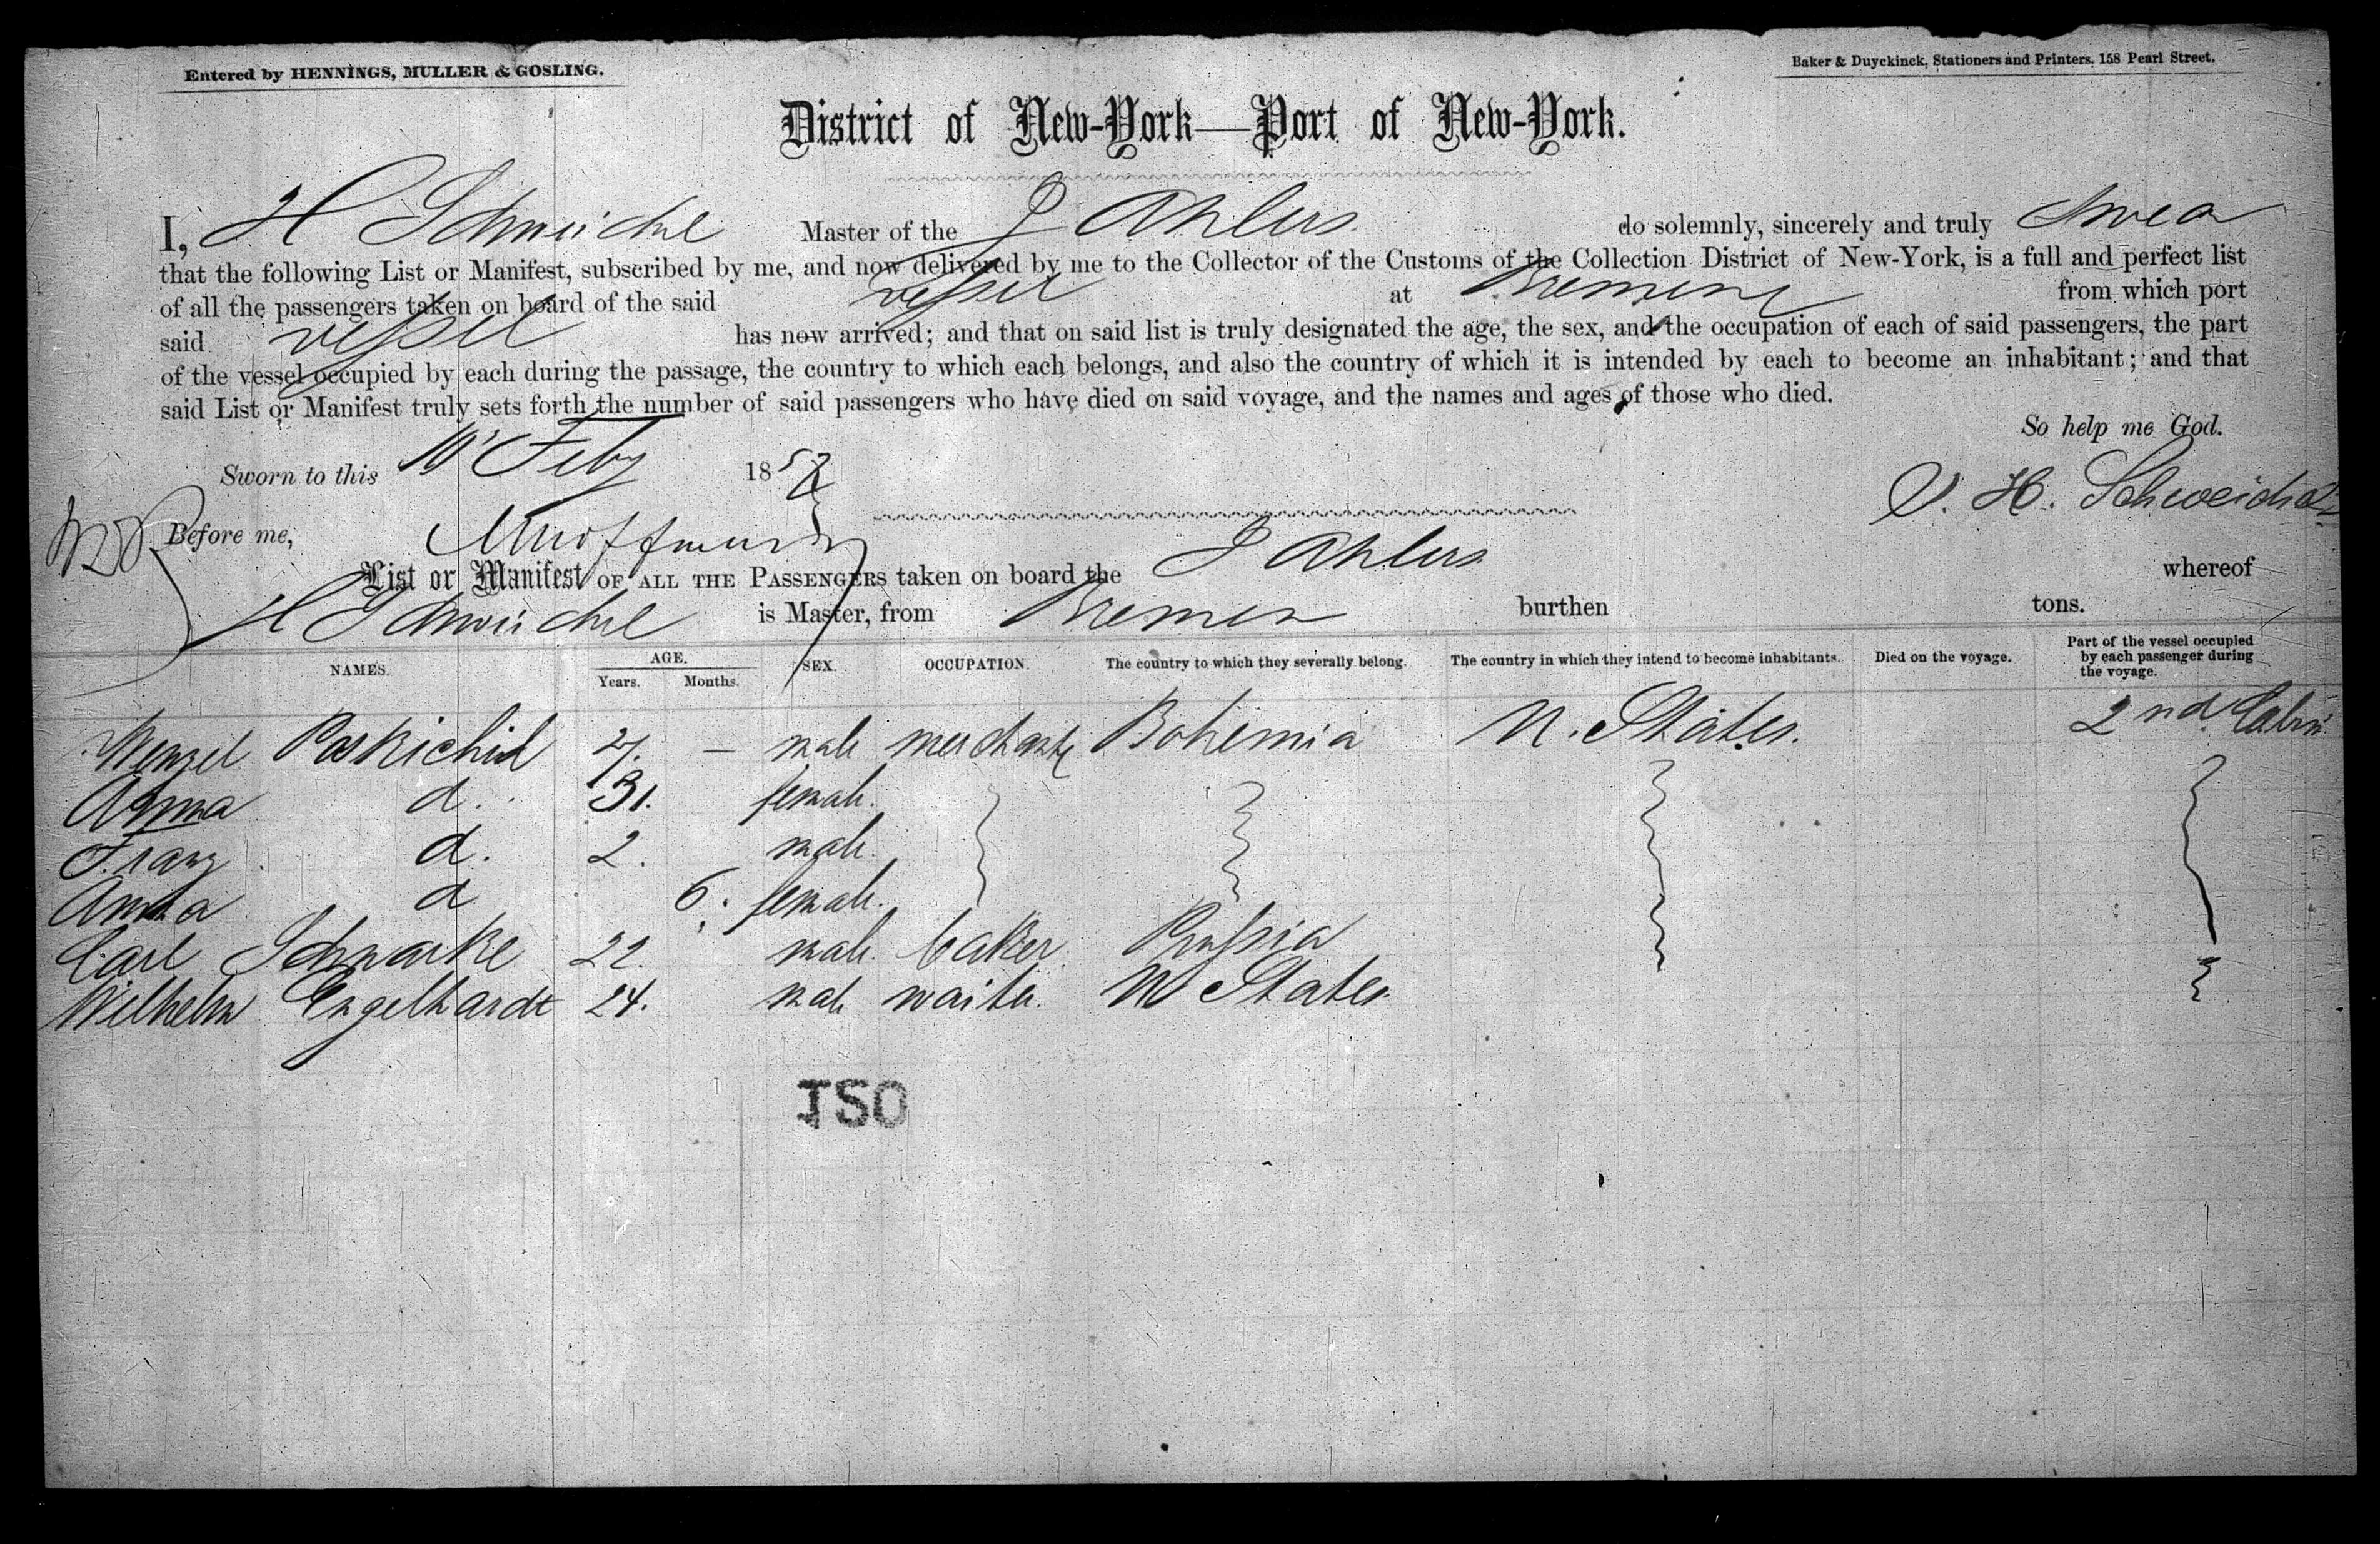 Entered by HENNINGS, MULLER & GOSLING.
Baker & Duyckinck, Stationers and Printers, 158 Pearl Street.
District of New-York—Port of New-York.
I, H Schweichel Master of the J Ahlers do solemnly, sincerely and truly Swea
that the following List or Manifest, subscribed by me, and now delivered by me to the Collector of the Customs of the Collection District of New-York, is a full and perfect list
of all the passengers taken on board of the said vessel at Bremen from which port
said vessel has now arrived; and that on said list is truly designated the age, the sex, and the occupation of each of said passengers, the part
of the vessel occupied by each during the passage, the country to which each belongs, and also the country of which it is intended by each to become an inhabitant; and that
said List or Manifest truly sets forth the number of said passengers who have died on said voyage, and the names and ages of those who died.
So help me God.
Sworn to this 10 Feby 185
H. Schweichel
Before me,
List or Manifest OF ALL THE PASSENGERS taken on board the J Ahlers whereof
H Schweichel is Master, from Bremen burthen tons.
NAMES. AGE. Years. Months. SEX. OCCUPATION. The country to which they severally belong. The country in which they intend to become inhabitants. Died on the voyage. Part of the vessel occupied by each passenger during the voyage.
Wenzel 27. — male merchant Bohemia U. States. 2nd Cabin
Anna d. 31. female.
Franz d. 2. male.
Anna d 6. female.
Carl Schwarke 22. male. baker Prussia
Wilhelm Engelhardt 24. male waiter. U States.
ISO